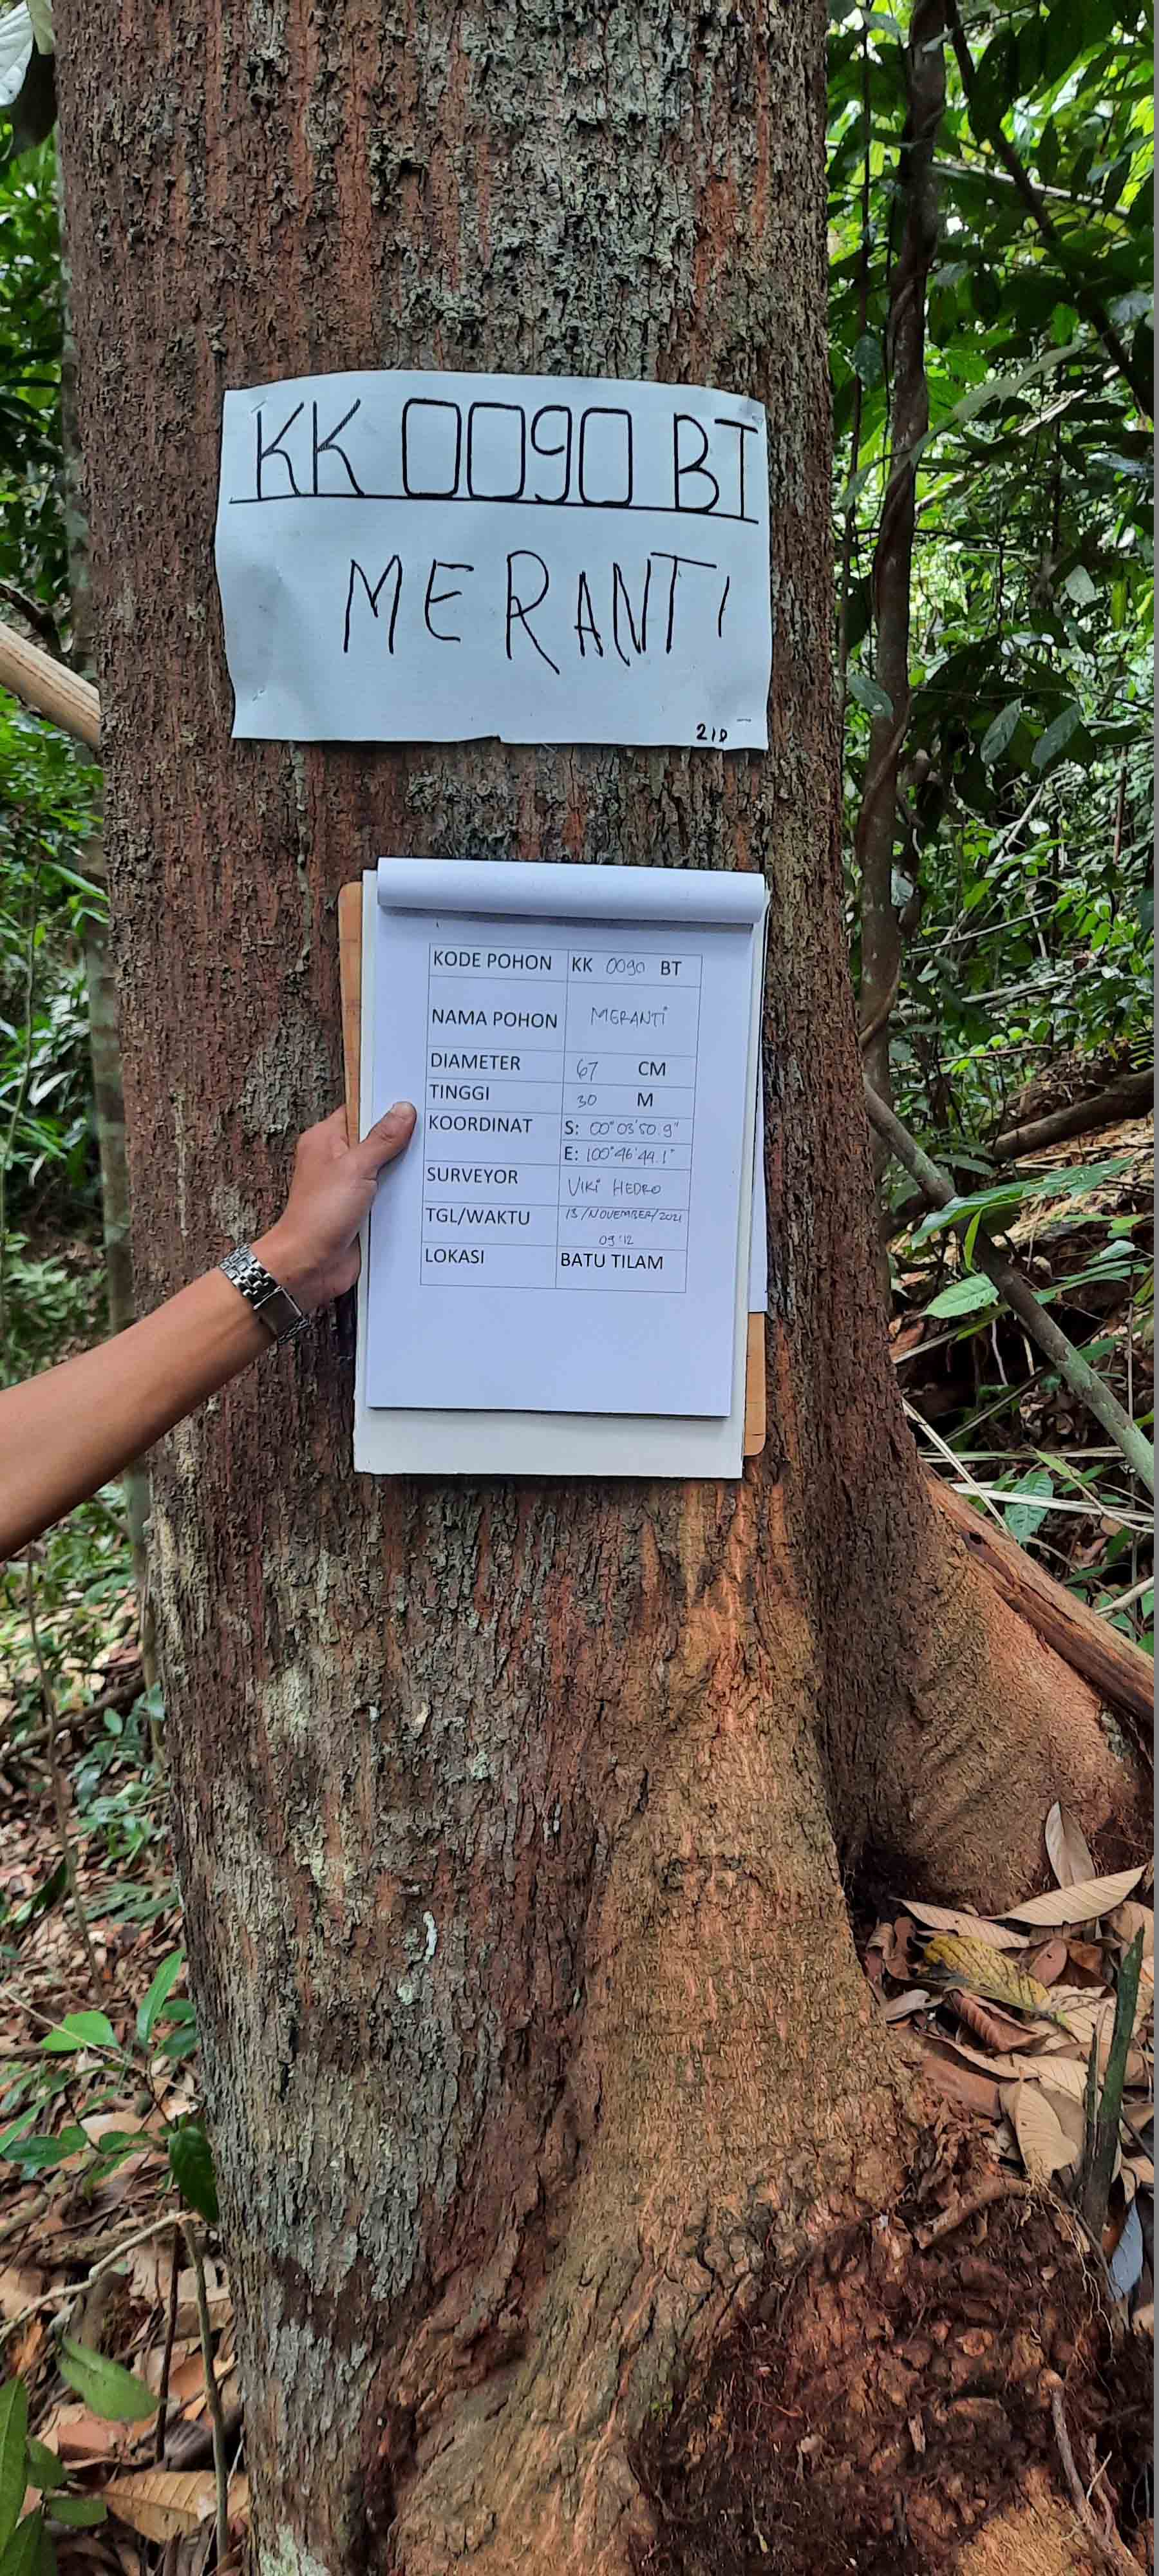 KK 0090 BT
MERANTI
210
KODE POHON KK 0090 BT
NAMA POHON MERANTI
DIAMETER 67 CM
TINGGI 30 M
KOORDINAT S: 00°03'50.9"
E: 100°46'44.1"
SURVEYOR VIKI HEDRO
TGL/WAKTU 13/NOVEMBER/2021
09:12
LOKASI BATU TILAM